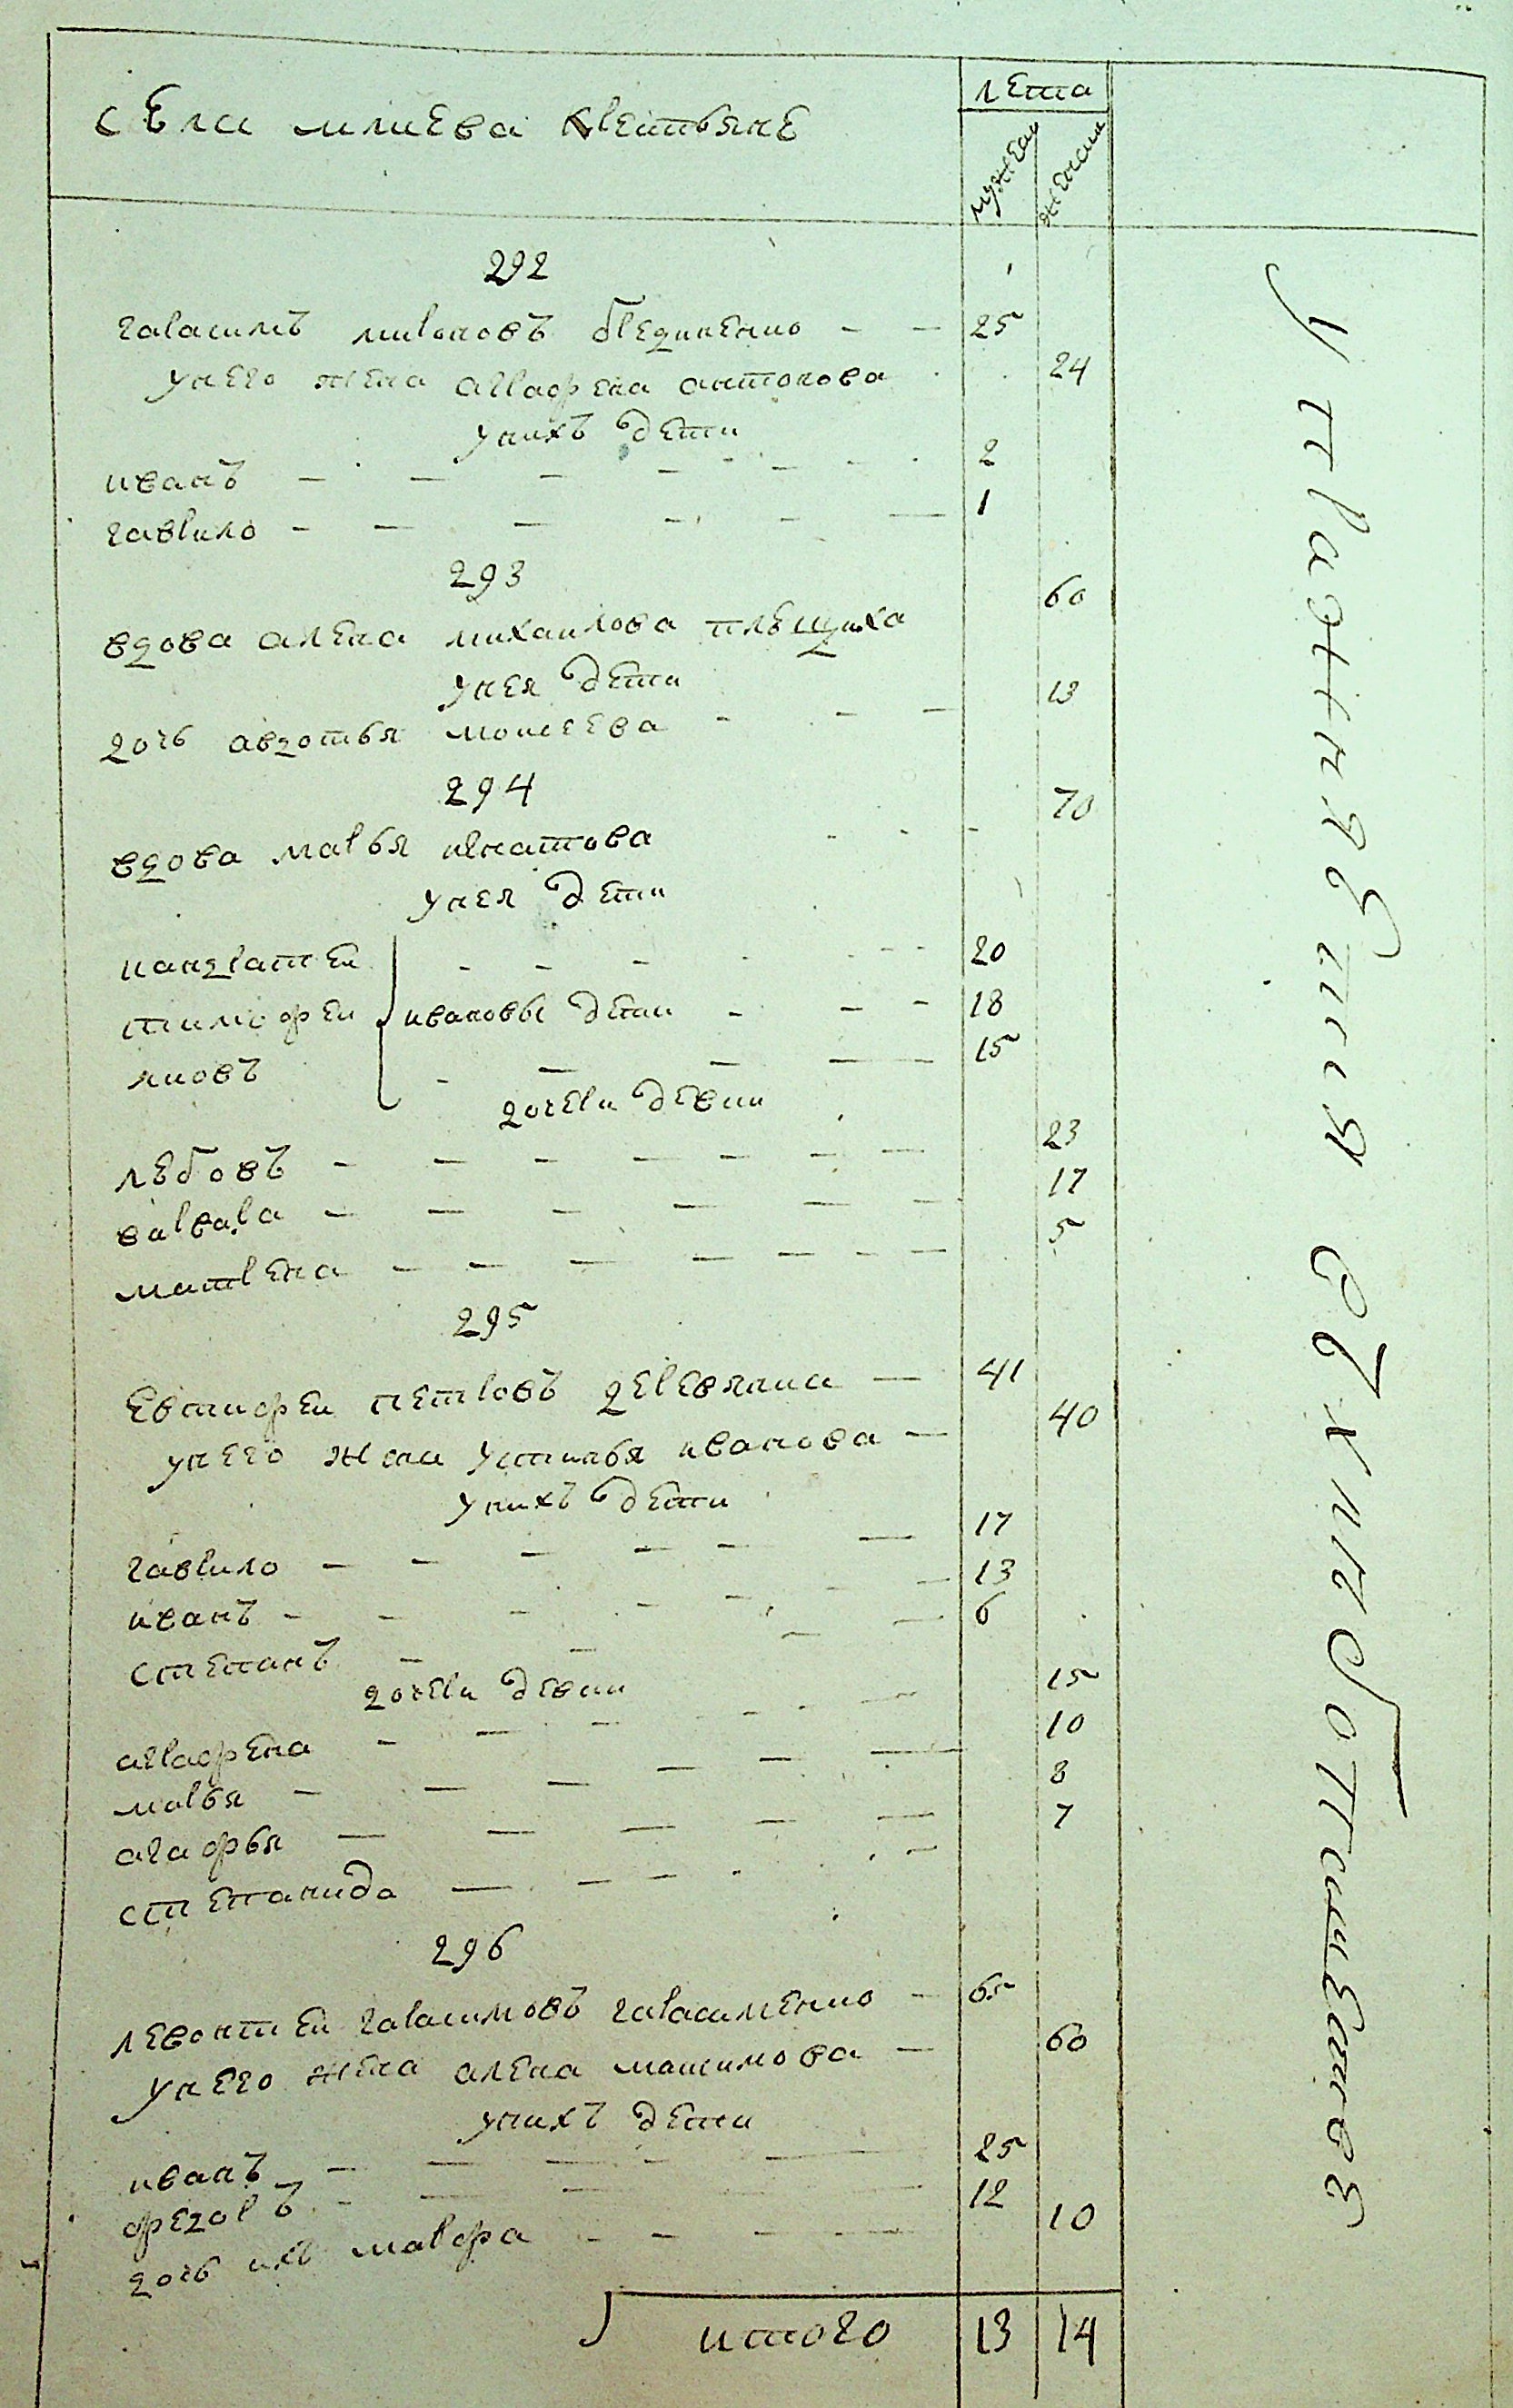 села млиева крестьяне
лета
мужеск
женски
292
гарасимъ мироновъ бредихенко 25
унего жена аграфена антонова 24
унихъ дети
иванъ 2
гаврило 1
293
вдова алена михаилова плещиха 60
унея дети
дочь авдотья моисеева 13
294
вдова марья игнатова 70
унея дети
кандратеи 20
тимофеи ивановы дети 18
яковъ 15
дочери девки
лебовъ 23
варвара 17
матрена 5
295
евтифеи петровъ деревянка 41
унего жена устинья иванова 40
унихъ дети
гаврило 17
иванъ 13
степанъ 6
дочери девки
аграфена 15
марья 10
агафья 8
степанида 7
296
левонтеи гарасимовъ гарасименко 65
унего жена алена максимова 60
унихъ дети
иванъ 25
федоръ 12
дочь ихъ мавра 10
итого 13 14